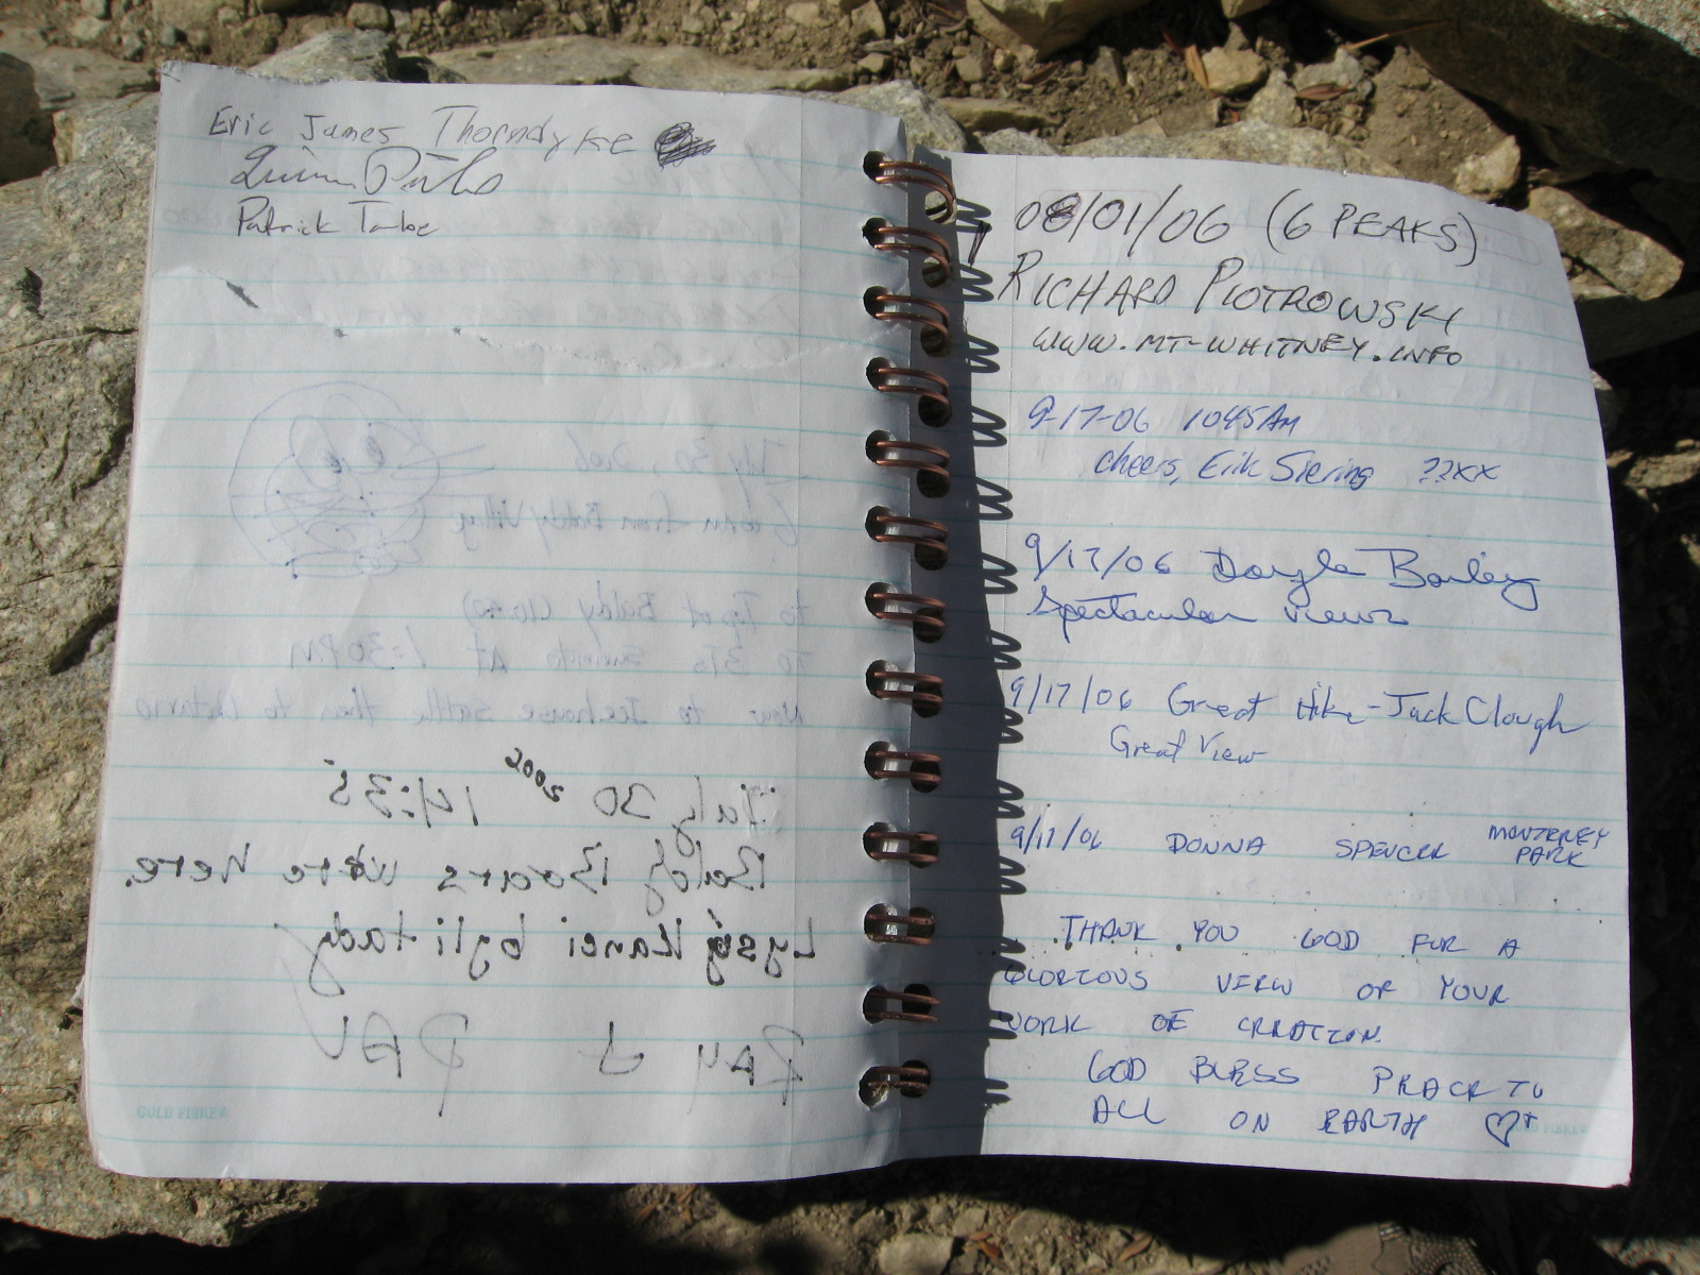 Eric James Thorndyke
Patrick Tarbe
GOLD FIBRE
08/01/06 (6 PEAKS)
RICHARD PIOTROWSKI
WWW.MT-WHITNEY.INFO
9-17-06 1045AM
cheers, Erik Siering ??XX
9/17/06 Dayle Bailey
Spectacular views
9/17/06 Great Hike - Jack Clough
Great View
9/17/06 DONNA SPENCER MONTEREY
PARK
THANK YOU GOD FOR A
GLORIOUS VIEW OF YOUR
WORK OF CREATION.
GOD BLESS PEACE TO
ALL ON EARTH
July 30 2006 14:35
Baldy Boars were here.
Łysi Kanci byli tady
RAY & PAU
July 30, 2006
from Baldy Village
to Top of Baldy (10:50)
TO 3Ts Summits AT 1:30PM
Now to Icehouse Saddle then to Ontario